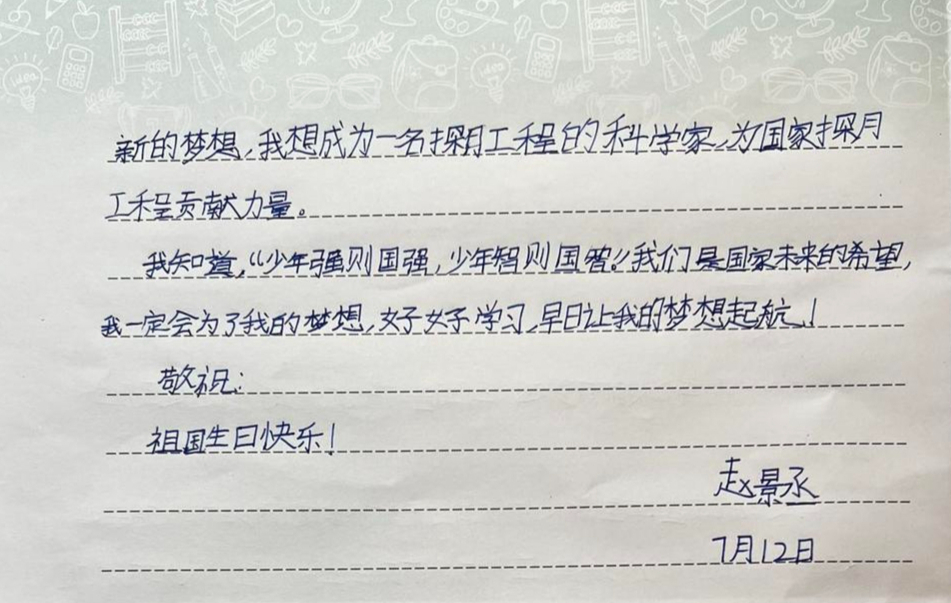 新的梦想，我想成为一名探月工程的科学家，为国家探月
工程贡献力量。
我知道，“少年强则国强，少年智则国智”我们是国家未来的希望，
我一定会为了我的梦想，好好学习，早日让我的梦想起航！
敬祝：
祖国生日快乐！
赵景丞
7月12日